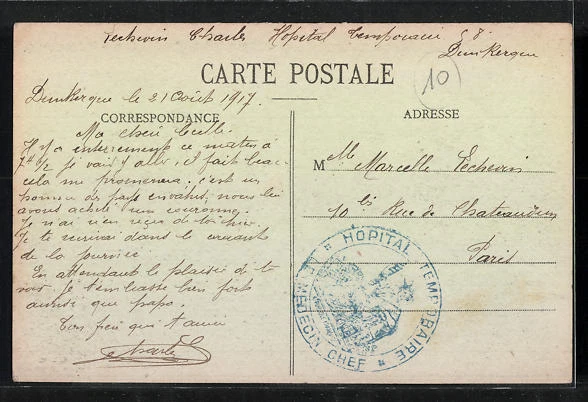 Techevin Charles Hopital temporaire 58
Dunkerque
CARTE POSTALE
10
Dunkerque le 21 Août 1917.
CORRESPONDANCE
ADRESSE
Ma chère
Il y a enterrement ce matin à
7h 1/2 je vais y aller, il fait beau
cela me promenera; c'est un
homme de pays envahis, nous lui
avons acheté une couronne.
Je n'ai rien reçu de toi hier
Je te récrirai dans le courant
de la journée
En attendant le plaisir de te
voir je t'embrasse bien fort
ainsi que papa.
Ton frère qui t'aime
Charles
Mlle Marcelle Techevin
10 bis Rue de Chateaudun
Paris
HOPITAL TEMPORAIRE
LE MEDECIN CHEF